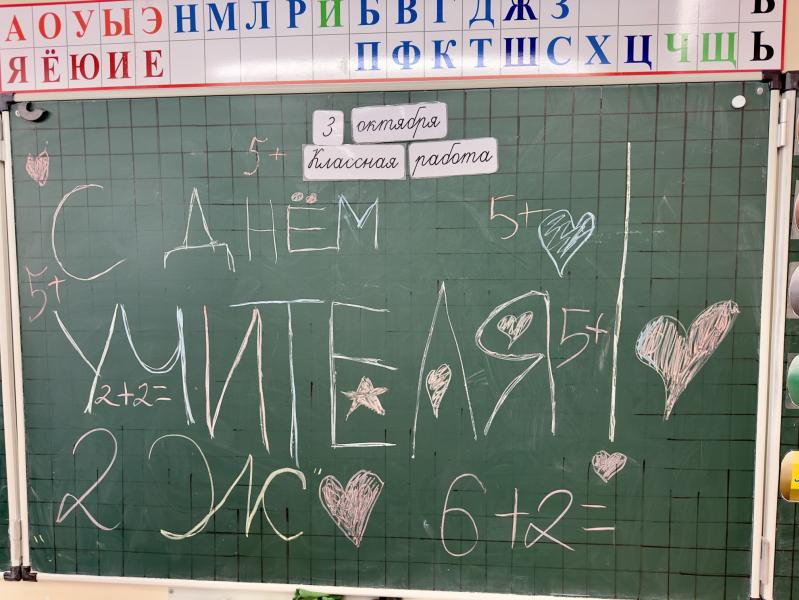 А О У Ы Э Н М Л Р Й Б В Г Д Ж З
Я Ё Ю И Е П Ф К Т Ш С Х Ц Ч Щ Ь
3 октября
Классная работа
5+
С ДНЁМ
5+
5+
УЧИТЕЛЯ
5+
2+2=
2 Ж
6+2=